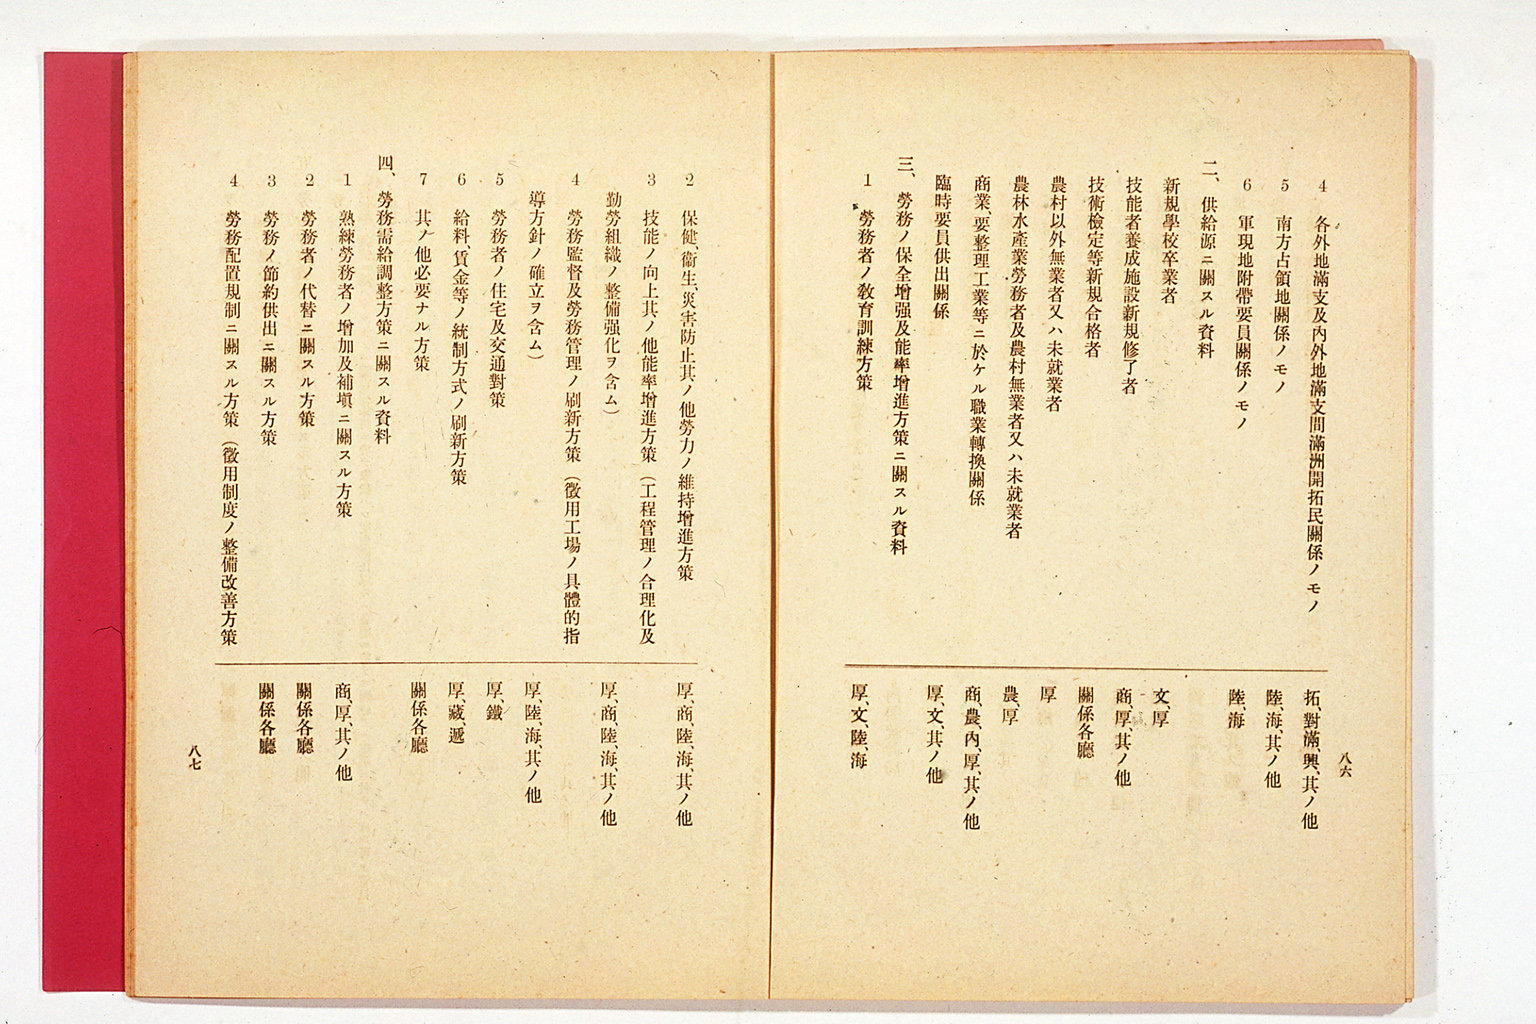 4　各外地滿支及內外地滿支間滿洲開拓民關係ノモノ　拓、對滿、興、其ノ他
5　南方占領地關係ノモノ　陸、海、其ノ他
6　軍現地附帶要員關係ノモノ　陸、海
二、供給源ニ關スル資料
新規學校卒業者　文、厚
技能者養成施設新規修了者　商、厚、其ノ他
技術檢定等新規合格者　關係各廳
農村以外無業者又ハ未就業者　厚
農林水產業勞務者及農村無業者又ハ未就業者　農、厚
商業、要整理工業等ニ於ケル職業轉換關係　商、農、內、厚、其ノ他
臨時要員供出關係　厚、文、其ノ他
三、勞務ノ保全增强及能率增進方策ニ關スル資料
1　勞務者ノ教育訓練方策　厚、文、陸、海
八六
2　保健、衞生、災害防止其ノ他勞力ノ維持增進方策　厚、商、陸、海、其ノ他
3　技能ノ向上其ノ他能率增進方策（工程管理ノ合理化及
勤勞組織ノ整備强化ヲ含ム）　厚、商、陸、海、其ノ他
4　勞務監督及勞務管理ノ刷新方策（徵用工場ノ具體的指
導方針ノ確立ヲ含ム）　厚、陸、海、其ノ他
5　勞務者ノ住宅及交通對策　厚、鐵
6　給料、賃金等ノ統制方式ノ刷新方策　厚、藏、遞
7　其ノ他必要ナル方策　關係各廳
四、勞務需給調整方策ニ關スル資料
1　熟練勞務者ノ增加及補塡ニ關スル方策　商、厚、其ノ他
2　勞務者ノ代替ニ關スル方策　關係各廳
3　勞務ノ節約供出ニ關スル方策　關係各廳
4　勞務配置規制ニ關スル方策（徵用制度ノ整備改善方策
八七